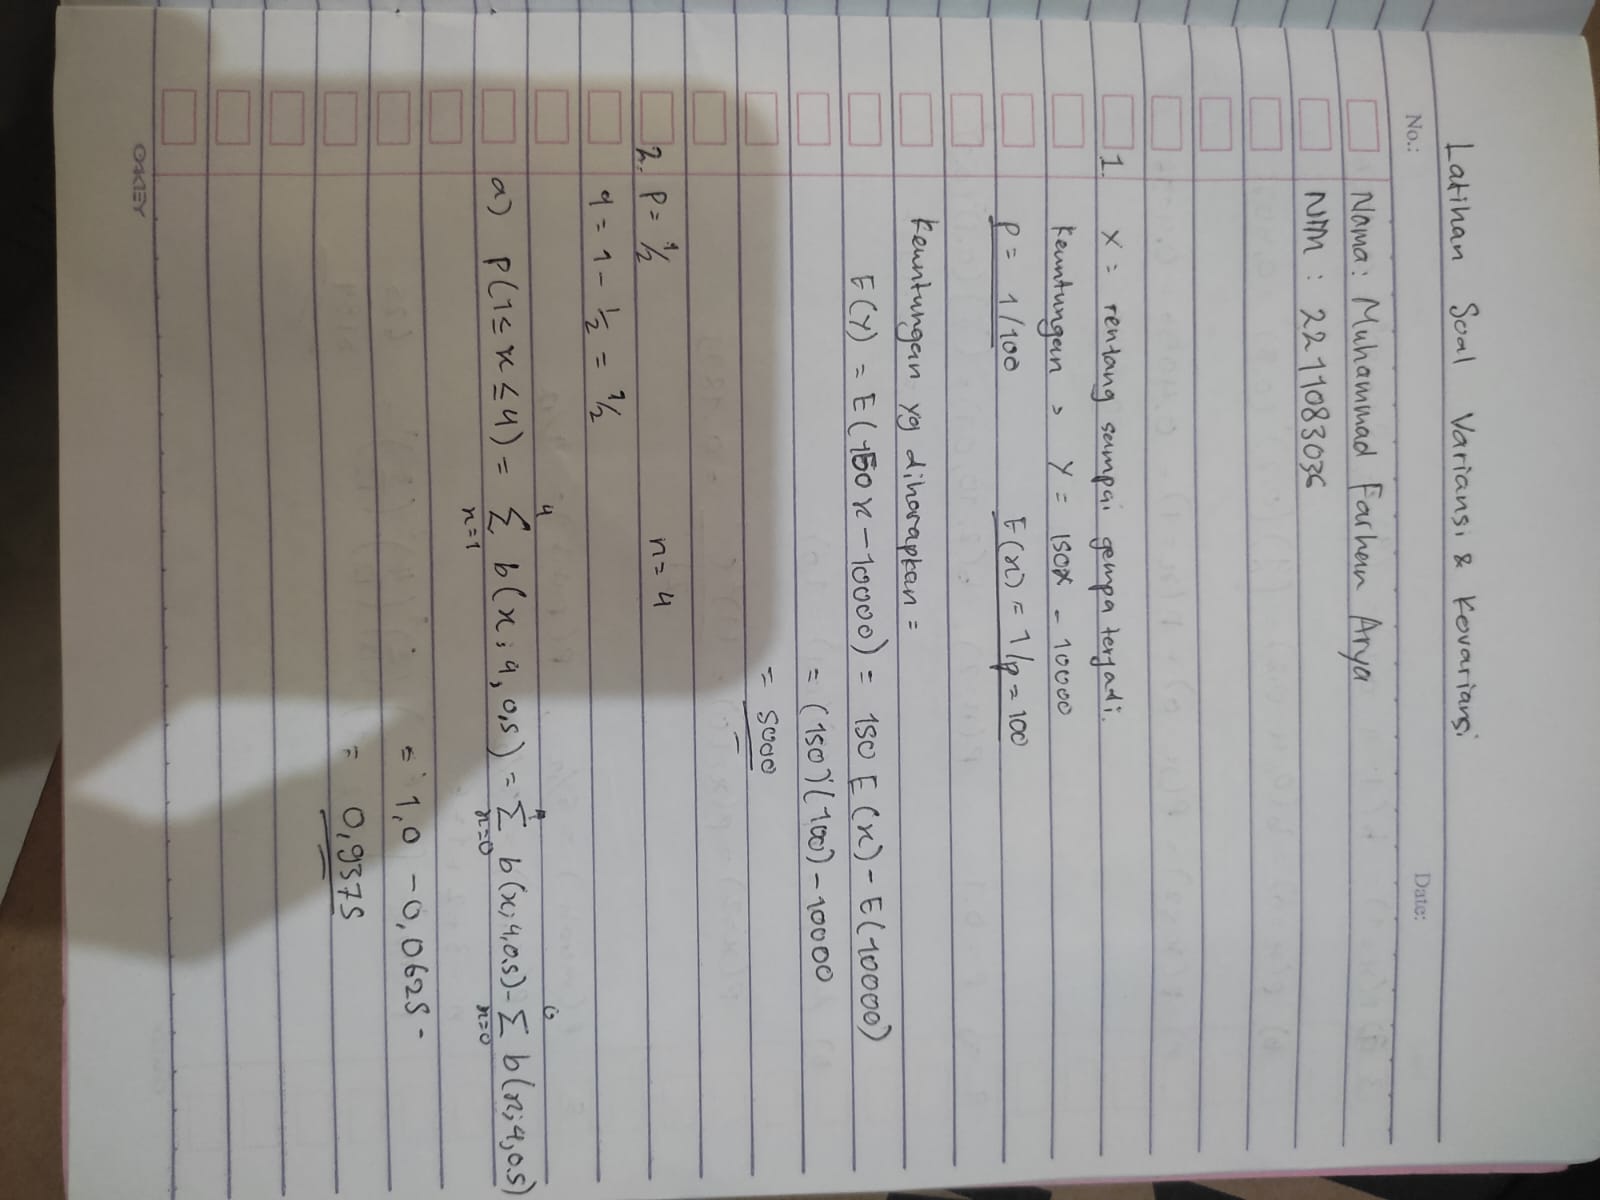 Latihan Soal Variansi & Kovariansi
No.: Date:
Nama: Muhammad Farhan Arya
NIM : 2211083036
1. X = rentang sampai gempa terjadi.
Keuntungan > Y = 150X - 10000
P = 1/100 E(x) = 1/p = 100
Keuntungan yg diharapkan =
E(Y) = E(150x - 10000) = 150 E(x) - E(10000)
= (150)(100) - 10000
= 5000
2. P = 1/2 n = 4
q = 1 - 1/2 = 1/2
a) P(1 ≤ x ≤ 4) = 4∑x=1 b(x; 4, 0,5) = 4∑x=0 b(x; 4, 0.5) - 0∑x=0 b(x; 4, 0.5)
= 1,0 - 0,0625 -
= 0,9375
OKEY